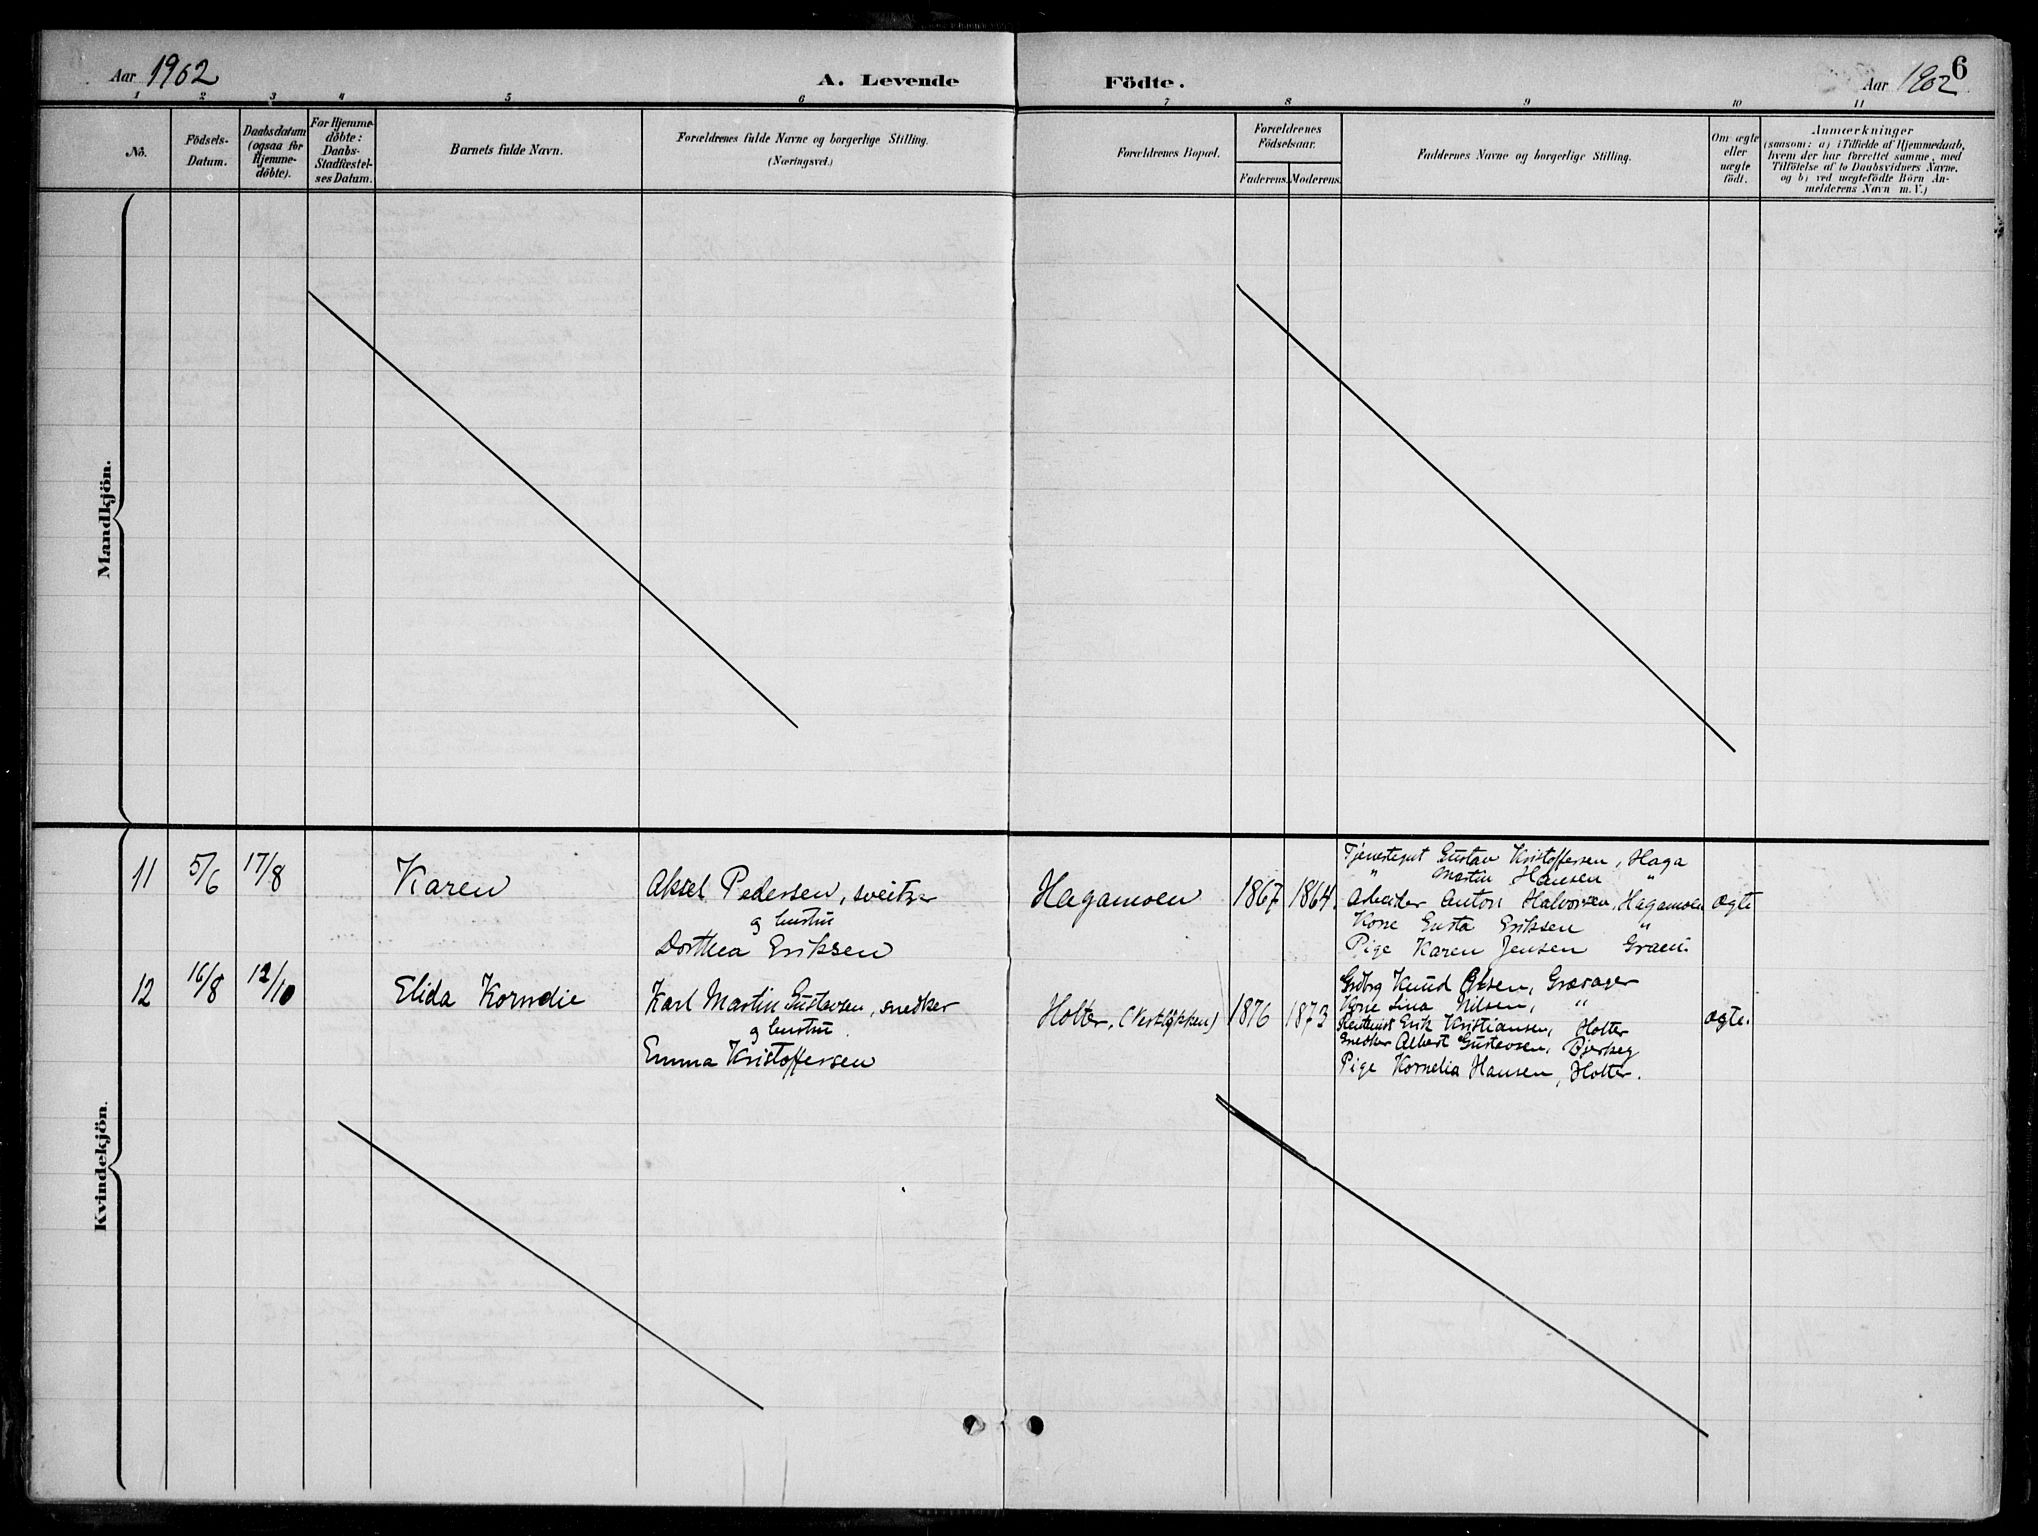 Aar 1902
A. Levende
Födte.
6
Aar 1902
1 2 3 4 5 6 7 8 9 10 11
No.
Födsels-
Datum.
Daabsdatum
(ogsaa for
Hjemme-
döbte).
For Hjemme-
döbte:
Daabs-
Stadfæstel-
ses Datum.
Barnets fulde Navn.
Forældrenes fulde Navne og borgerlige Stilling.
(Næringsvei.)
Forældrenes Bopæl.
Forældrenes
Födselsaar.
Faderens. Moderens.
Faddernes Navne og borgerlige Stilling.
Om ægte
eller
uægte
födt.
Anmærkninger
(saasom: a) i Tilfælde af Hjemmedaab,
hvem der har forrettet samme, med
Tilföielse af to Daabsvidners Navne.
og b) ved uægtefödte Börn An-
melderens Navn m. V.)
Mandkjön.
Kvindekjön.
11 5/6 17/8 Karen
Aksel Pedersen, sveitser
og hustru
Dorthea Eriksen
Hagamoen 1867 1864.
Tjenestegut Gustav Kristoffersen, Haga
" Martin Hansen "
Arbeider Anton Halvorsen, Hagamoen
Kone Gusta Eriksen "
Pige Karen Jensen
ægte
12 16/8 12/10 Elida Korndie
Karl Martin Gustavsen, snedker
og hustru.
Emma Kristoffersen
Holter, (Vestløkken) 1876 1873
Grdbrg Knud Olsen, Græsager
Kone Lina Nilsen, "
Erik Kristiansen, Holter
Snedker Albert Gustavsen, Bjerkeg
Pige Kornelia Hansen, Holter.
ægte.